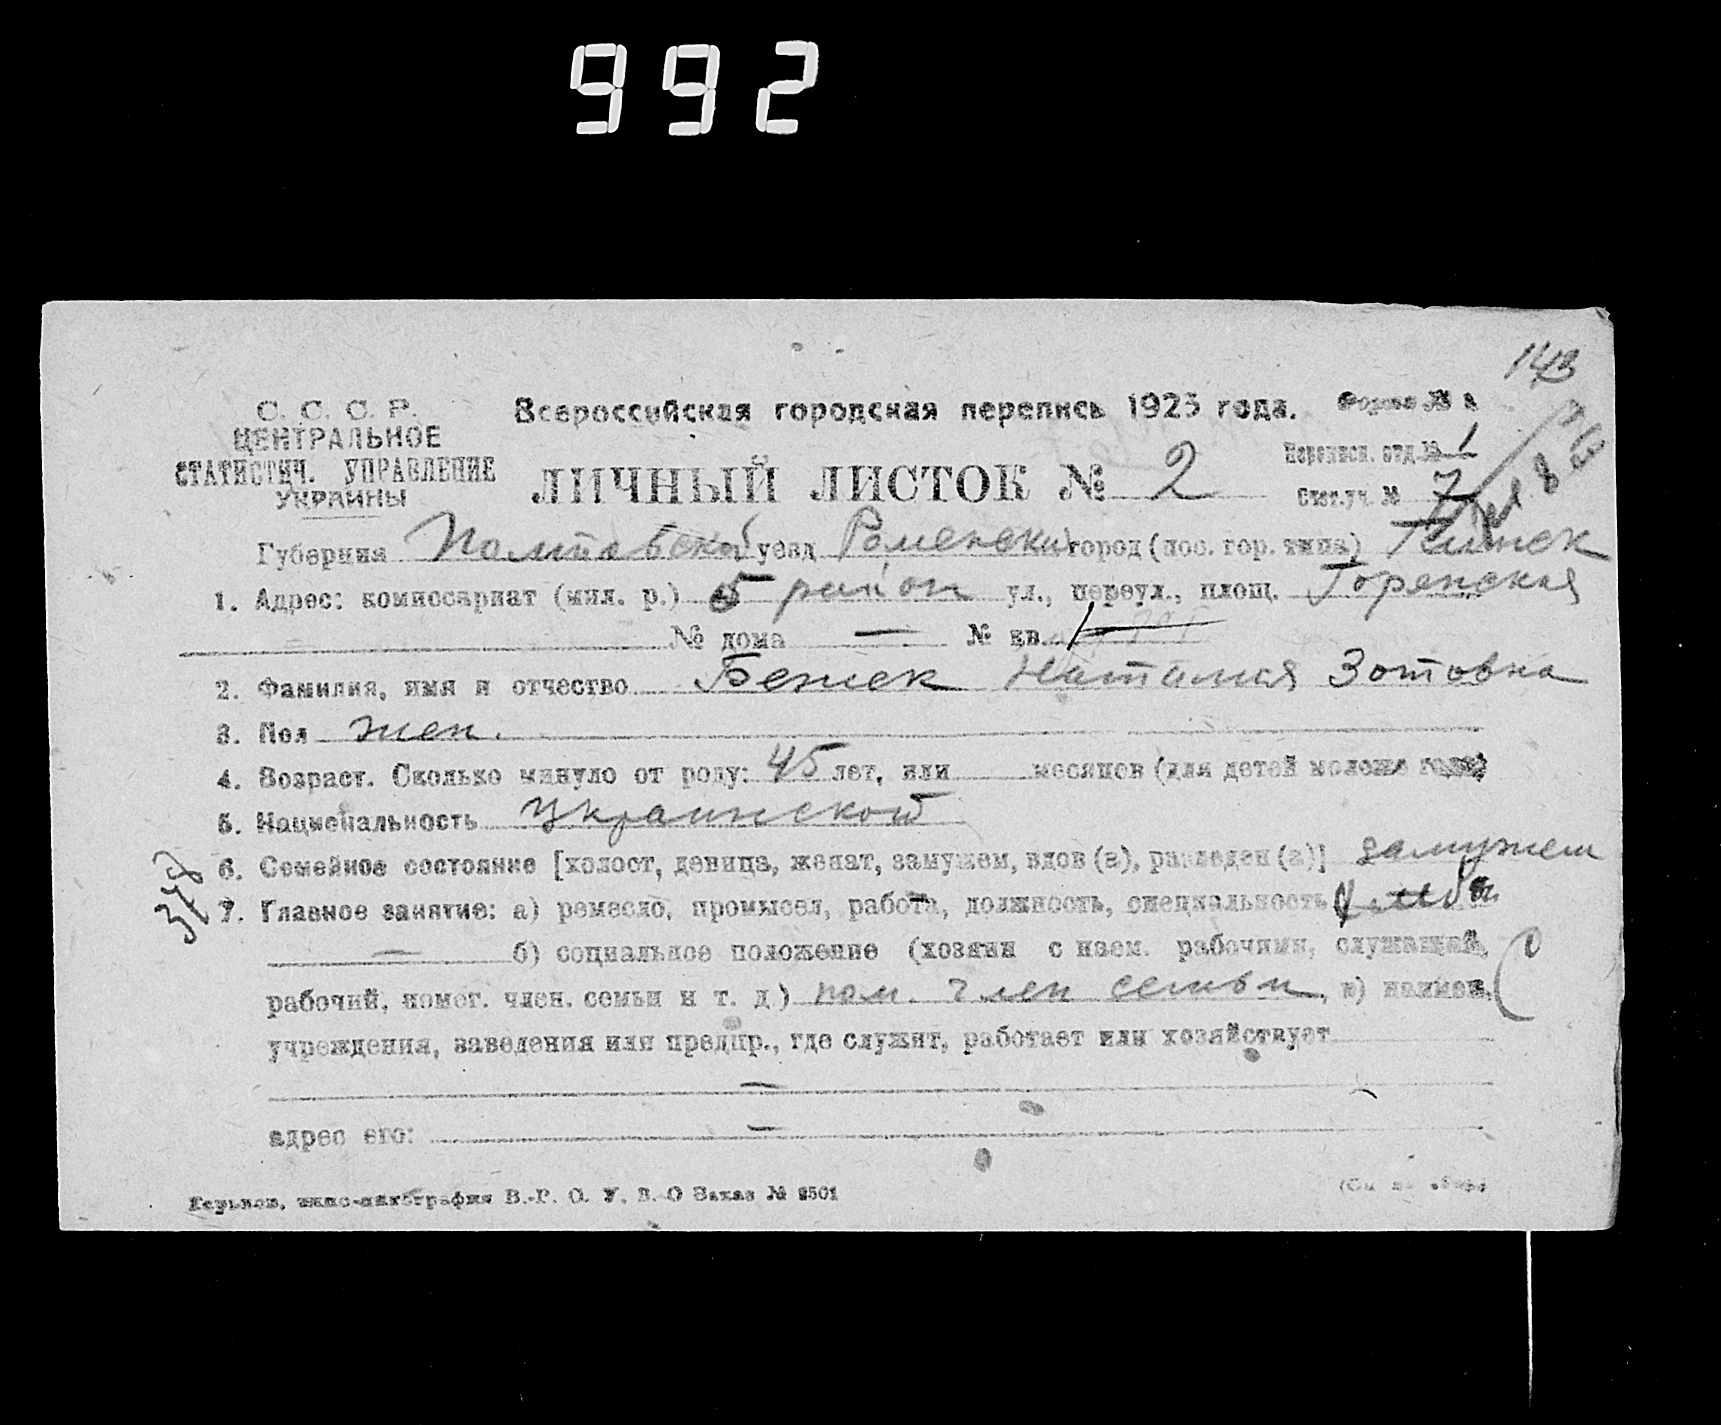 992
143
С. С. С. Р.
ЦЕНТРАЛЬНОЕ
СТАТИСТИЧ. УПРАВЛЕНИЕ
УКРАИНЫ
Всероссийская городская перепись 1923 года.
Форма №
Переписн. отд. № 1
ЛИЧНЫЙ ЛИСТОК № 2
Счет. уч. № 7
Губерния Полтавской уезд Роменский город (пос. гор. типа)
1. Адрес: комиссариат (мил. р.) 5 район ул., переул., площ.
№ дома — № кв.
2. Фамилия, имя и отчество Наталия Зотовна
3. Пол жен.
4. Возраст. Сколько минуло от роду: 45 лет, или месяцев (для детей моложе года)
5. Национальность украинской
6. Семейное состояние [холост, девица, женат, замужем, вдов (а), разведен (а)] замужем
378
7. Главное занятие: а) ремесло, промысел, работа, должность, специальность
— б) социальное положение (хозяин с наем. рабочими, служащий,
рабочий, помог. член. семьи и т. д) пом. член семьи, в) наимен.
учреждения, заведения или предпр., где служит, работает или хозяйствует
—
адрес его: —
Харьков, В.-Р. О. У. В. О Заказ № 8501